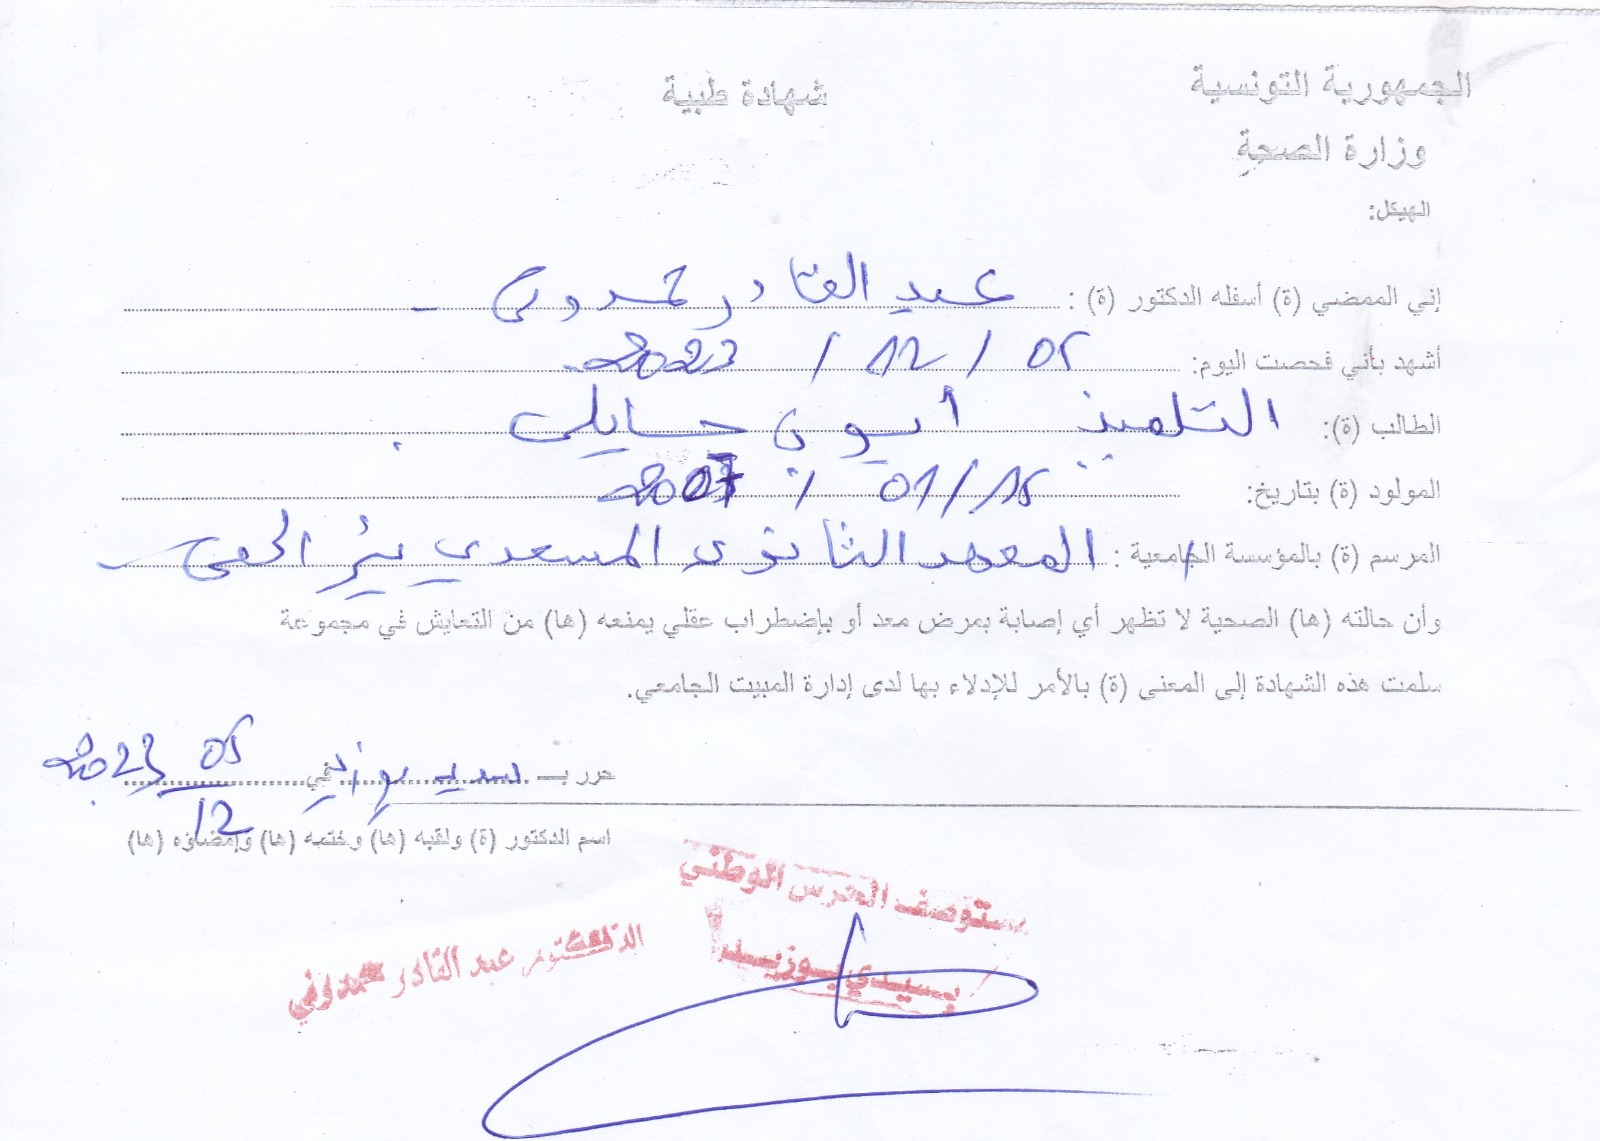 الجمهورية التونسية
شهادة طبية
وزارة الصحة
الهيكل:
إني الممضي (ة) أسفله الدكتور (ة) : عبد القادر حمدوني
أشهد بأني فحصت اليوم: 05 / 12 / 2023
الطالب (ة): التلميذ أيوب حايلي
المولود (ة) بتاريخ: 15 / 01 / 2007
المرسم (ة) بالمؤسسة الجامعية : المعهد الثانوي المسعدي بئر الحفي
وأن حالته (ها) الصحية لا تظهر أي إصابة بمرض معد أو بإضطراب عقلي يمنعه (ها) من التعايش في مجموعة
سلمت هذه الشهادة إلى المعنى (ة) بالأمر للإدلاء بها لدى إدارة المبيت الجامعي.
حرر بـ سيدي بوزيد في 05 / 12 2023
اسم الدكتور (ة) ولقبه (ها) وختمه (ها) وإمضاؤه (ها)
مستوصف الحرس الوطني
بسيدي بوزيد
الدكتور عبد القادر حمدوني